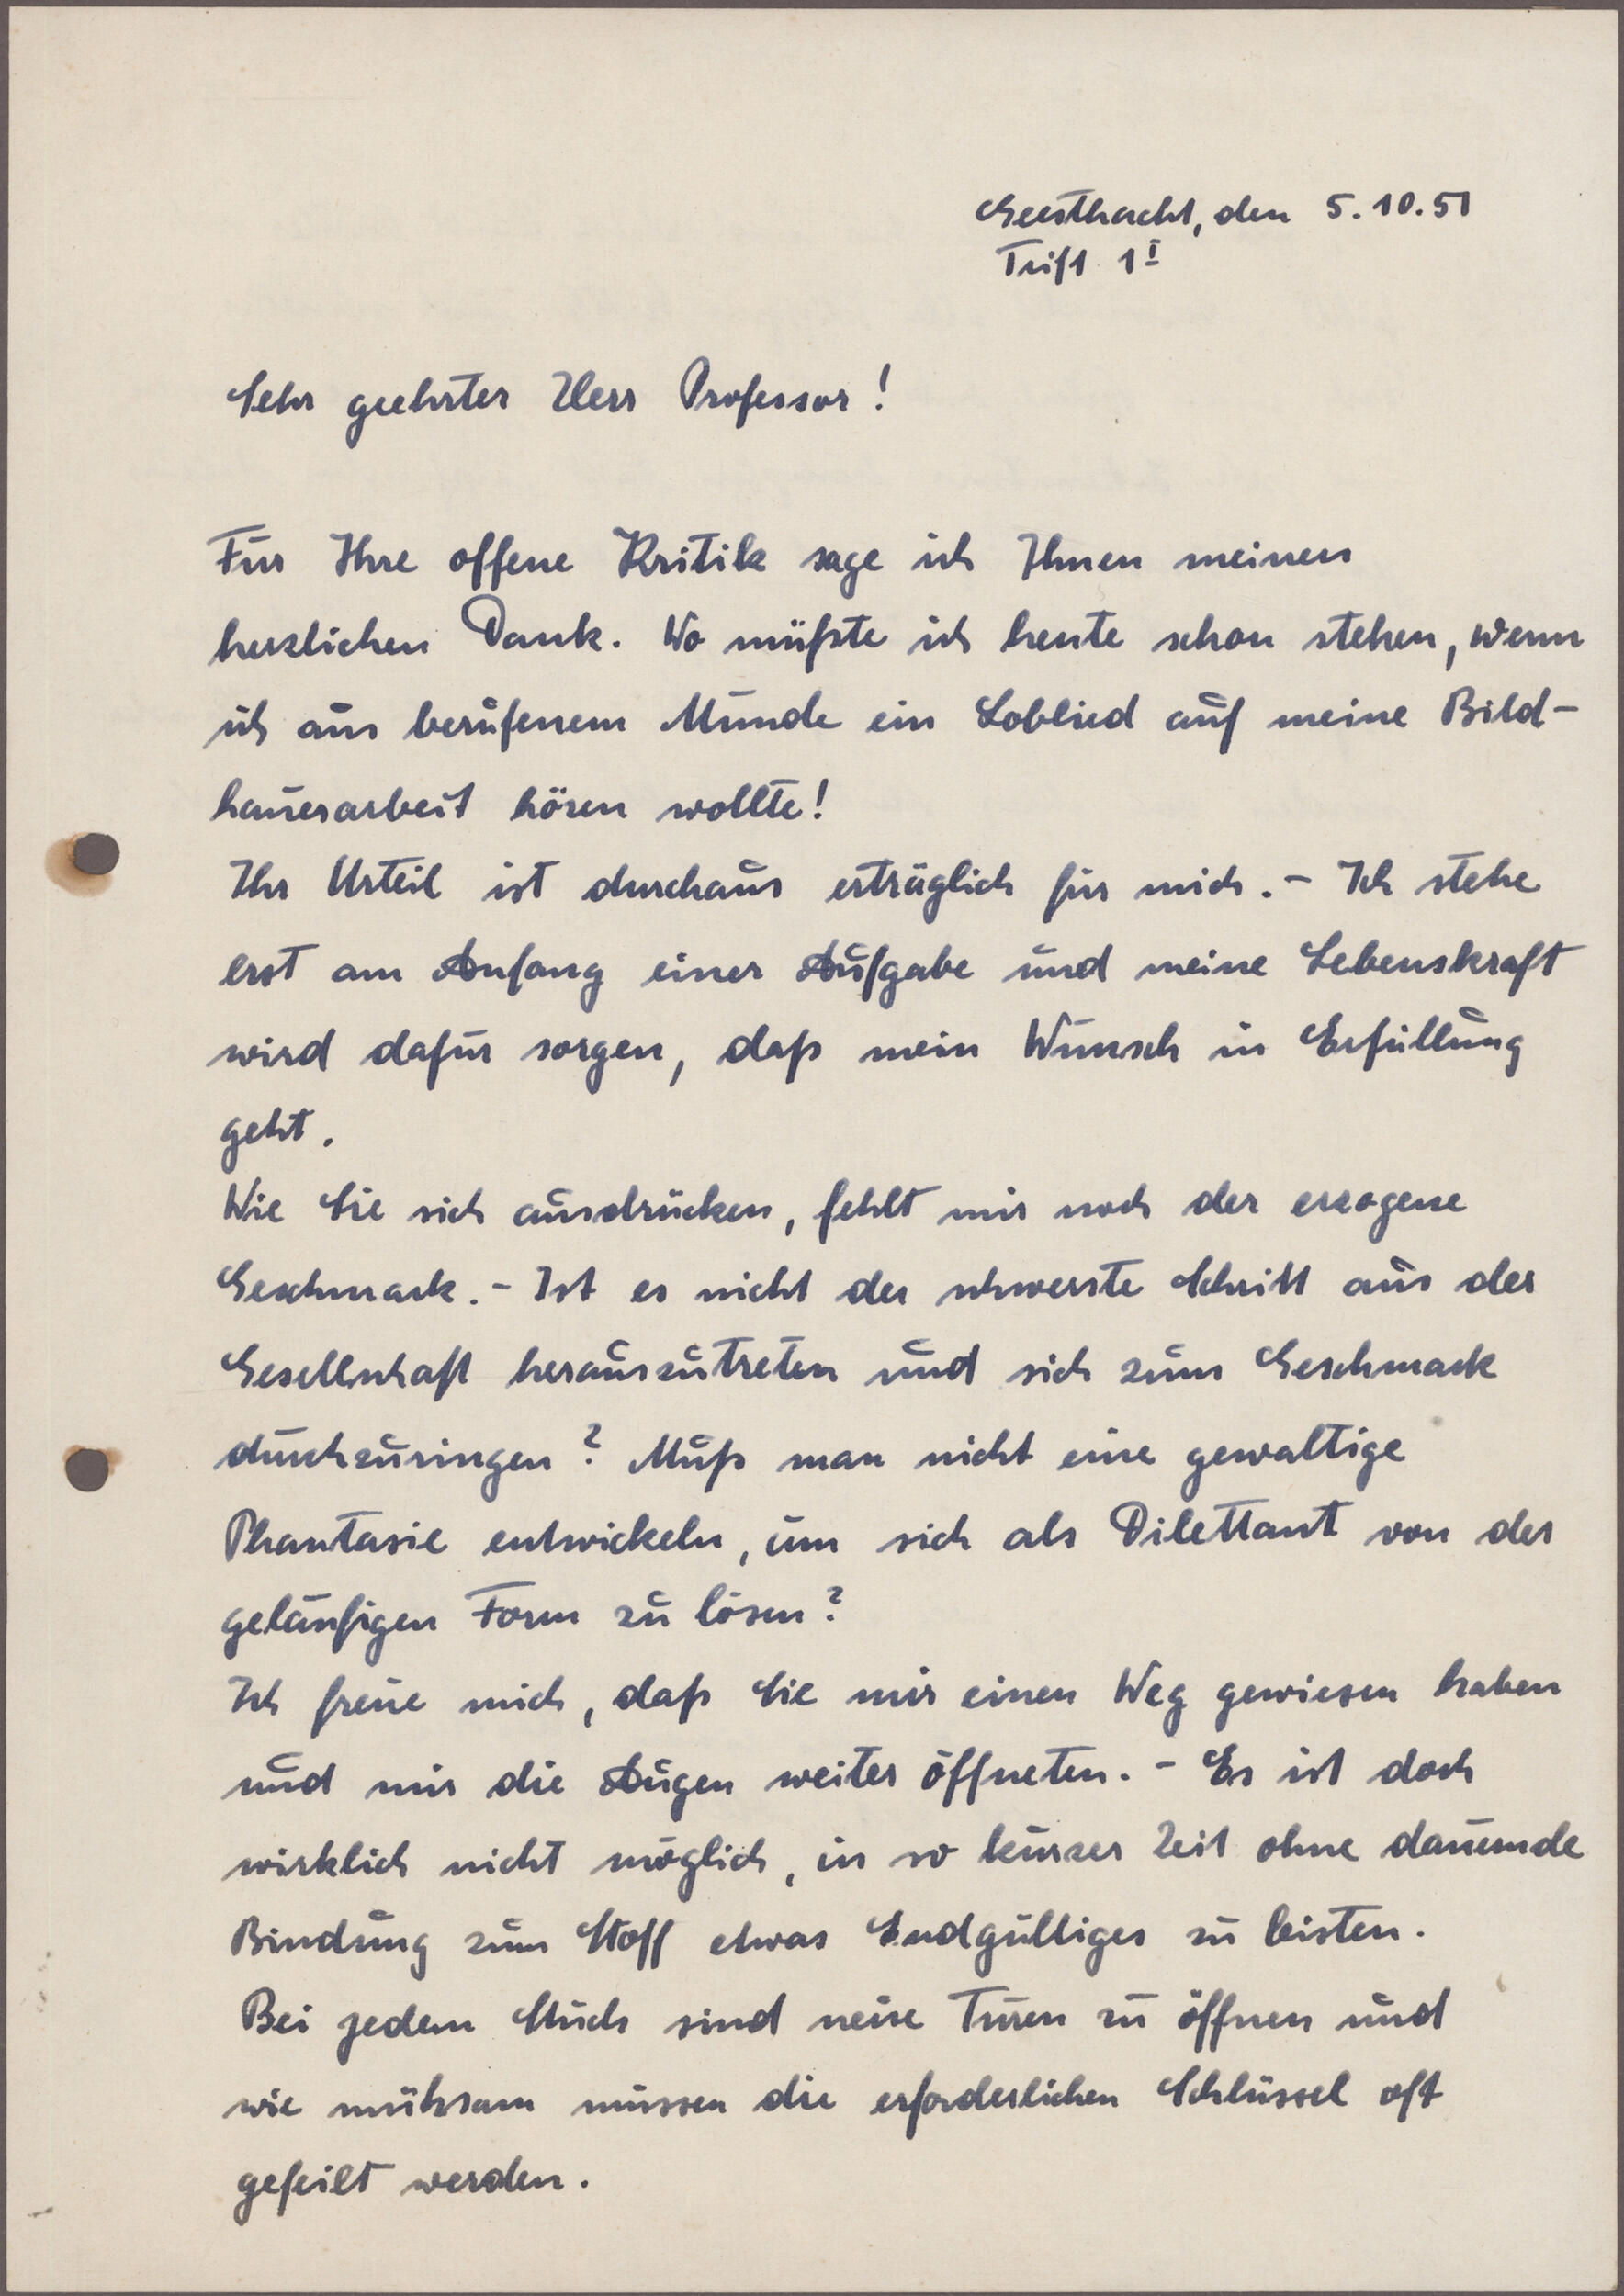 Geesthacht, den 5.10.51
Trift 1 I
Sehr geehrter Herr Professor!
Für Ihre offene Kritik sage ich Ihnen meinen
herzlichen Dank. Wo müßte ich heute schon stehen, wenn
ich aus berufenem Munde ein Loblied auf meine Bild-
hauerarbeit hören wollte!
Ihr Urteil ist durchaus erträglich für mich. - Ich stehe
erst am Anfang einer Aufgabe und meine Lebenskraft
wird dafür sorgen, daß mein Wunsch in Erfüllung
geht.
Wie Sie sich ausdrücken, fehlt mir noch der erzogene
Geschmack. - Ist es nicht der schwerste Schritt aus der
Gesellschaft herauszutreten und sich zum Geschmack
durchzuringen? Muß man nicht eine gewaltige
Phantasie entwickeln, um sich als Dilettant von der
geläufigen Form zu lösen?
Ich freue mich, daß Sie mir einen Weg gewiesen haben
und mir die Augen weiter öffneten. - Es ist doch
wirklich nicht möglich, in so kurzer Zeit ohne dauernde
Bindung zum Stoff etwas Endgültiges zu leisten.
Bei jedem Stück sind neue Türen zu öffnen und
wie mühsam müssen die erforderlichen Schlüssel oft
gefeilt werden.